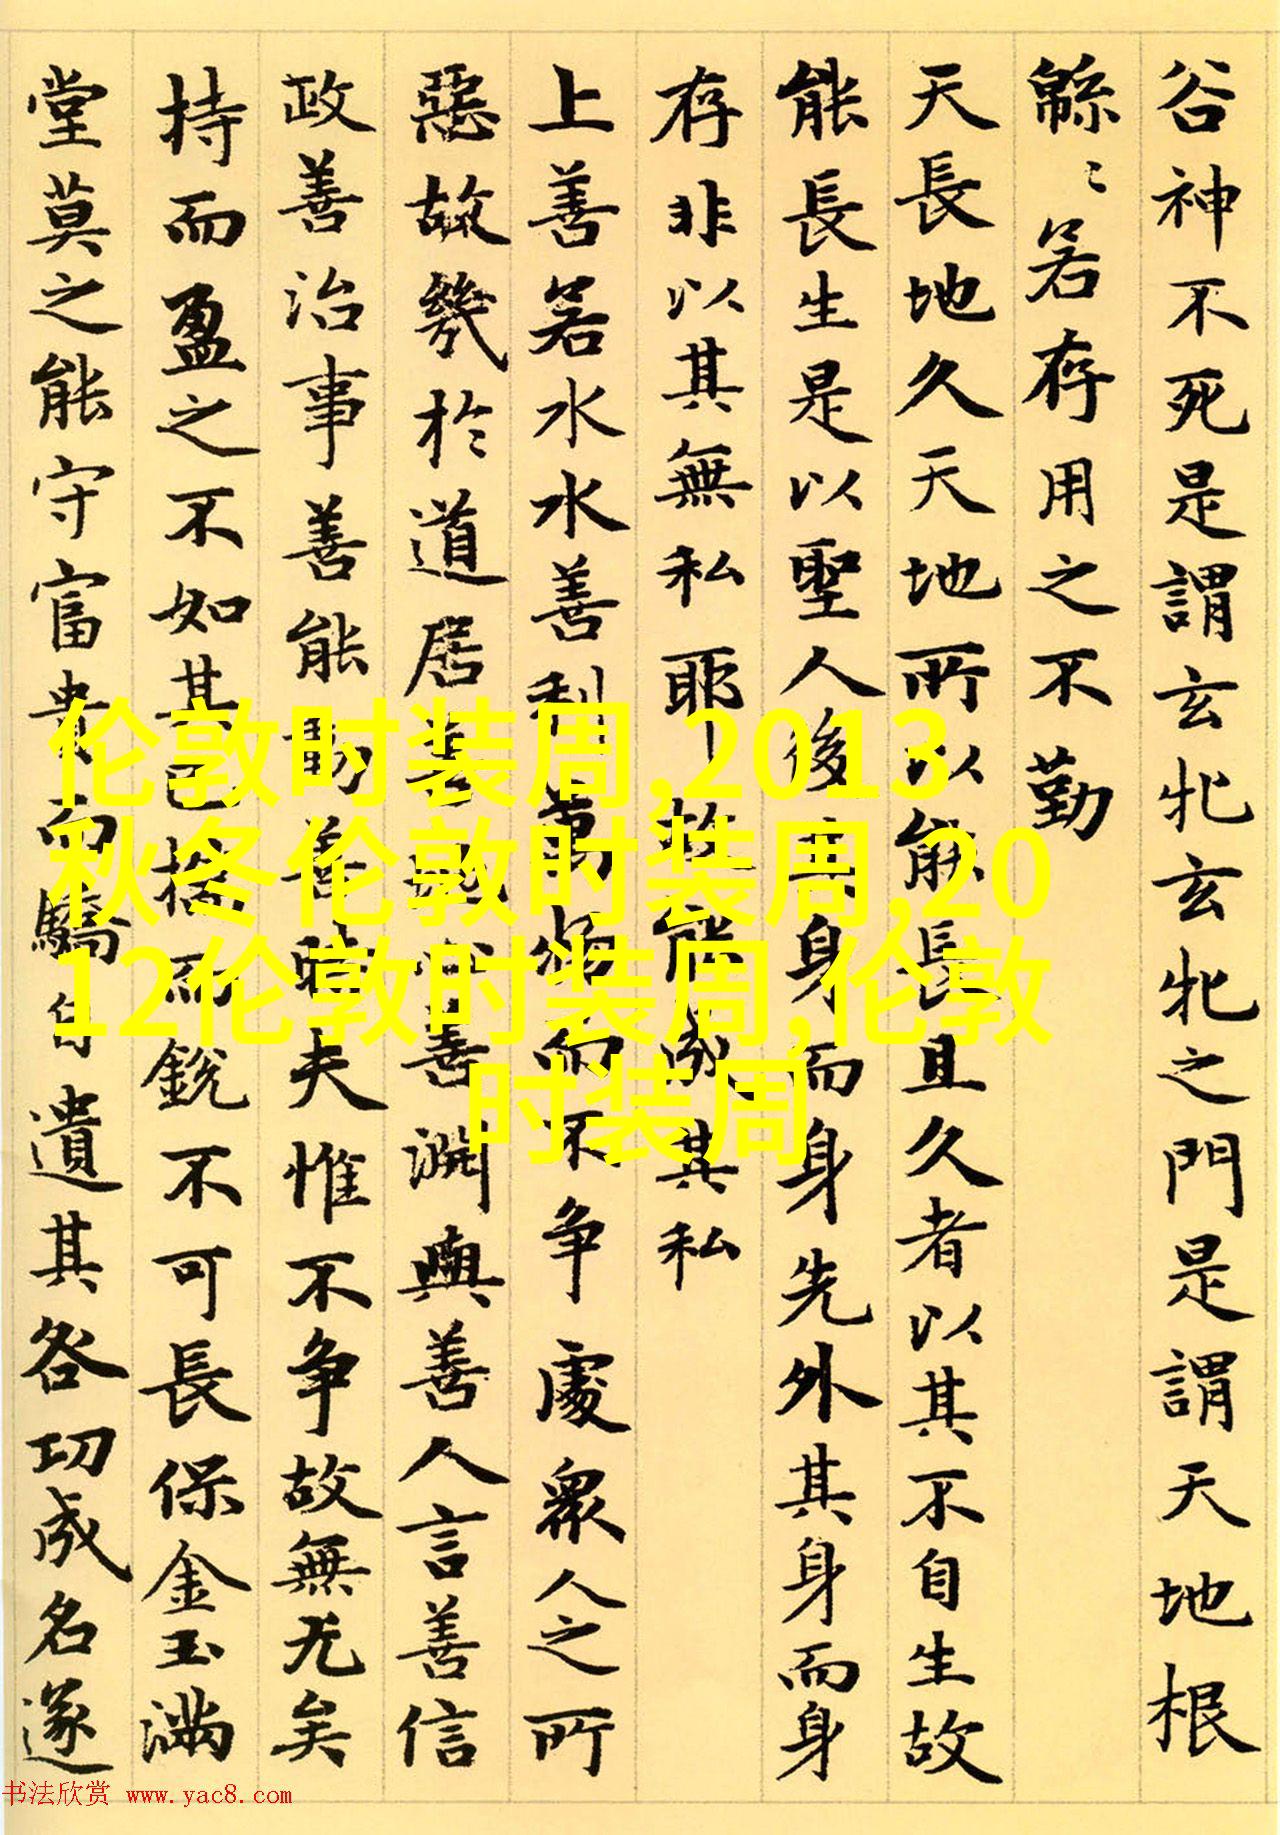 谷神不死是謂玄牝玄牝之門是謂天地根
緜〻若存用之不勤
天長地久天地所以能長且久者以其不自生故
能長生是以聖人後其身而身先外其身而身
存非以其無私耶故能成其私
上善若水水善利萬物而不争處衆人之所
惡故幾於道居善地心善渊與善人言善信
政善治事善能動善時夫惟不争故無尤矣
持而盈之不如其已揣而銳不可長保金玉滿
堂莫之能守富貴而驕自遺其咎功成名遂
伦敦时装周,2013
秋冬伦敦时装周,20
12伦敦时装周,伦敦
时装周
书法欣赏 www.yac8.com